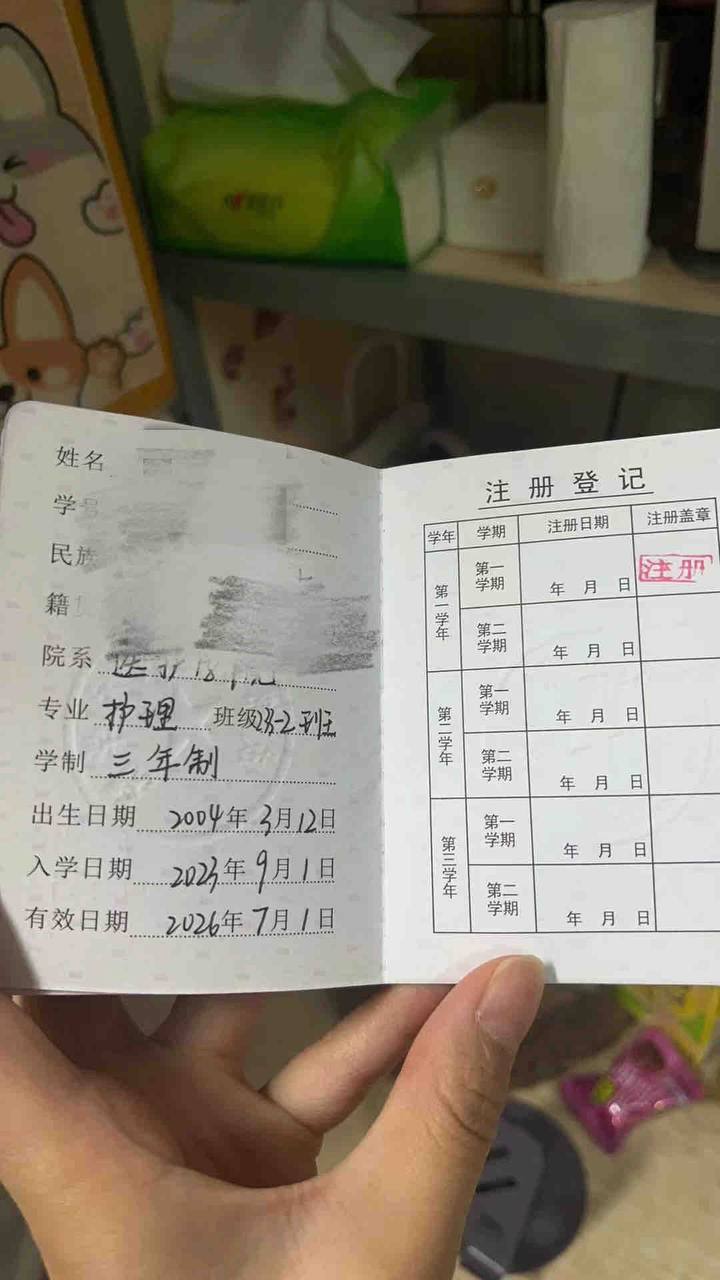 姓名
学号
民族
籍
院系 医护学院
专业 护理 班级23-2班
学制 三年制
出生日期 2004年3月12日
入学日期 2023年9月1日
有效日期 2026年7月1日
注册登记
学年 学期 注册日期 注册盖章
第一学年 第一学期 年 月 日 注册
第二学期 年 月 日
第二学年 第一学期 年 月 日
第二学期 年 月 日
第三学年 第一学期 年 月 日
第二学期 年 月 日